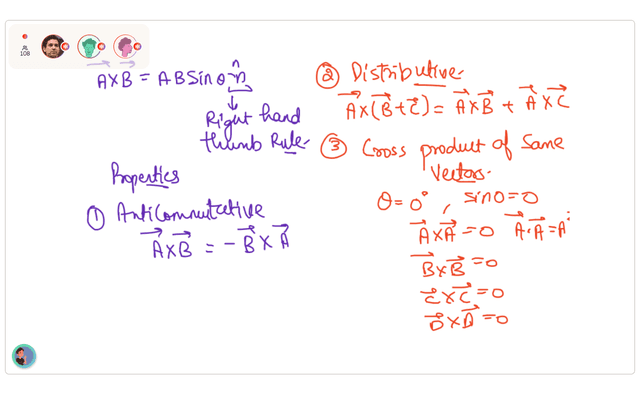 AL
108
A⃗×B⃗ = ABSinθ n̂
Right hand
thumb Rule
Properties
① Anticommutative
A⃗×B⃗ = −B⃗×A⃗
② Distributive
A⃗×(B⃗+C⃗) = A⃗×B⃗ + A⃗×C⃗
③ Cross product of Same
Vectors
θ=0°, sin0=0
A⃗×A⃗=0 A⃗·A⃗=A²
B⃗×B⃗=0
C⃗×C⃗=0
D⃗×D⃗=0